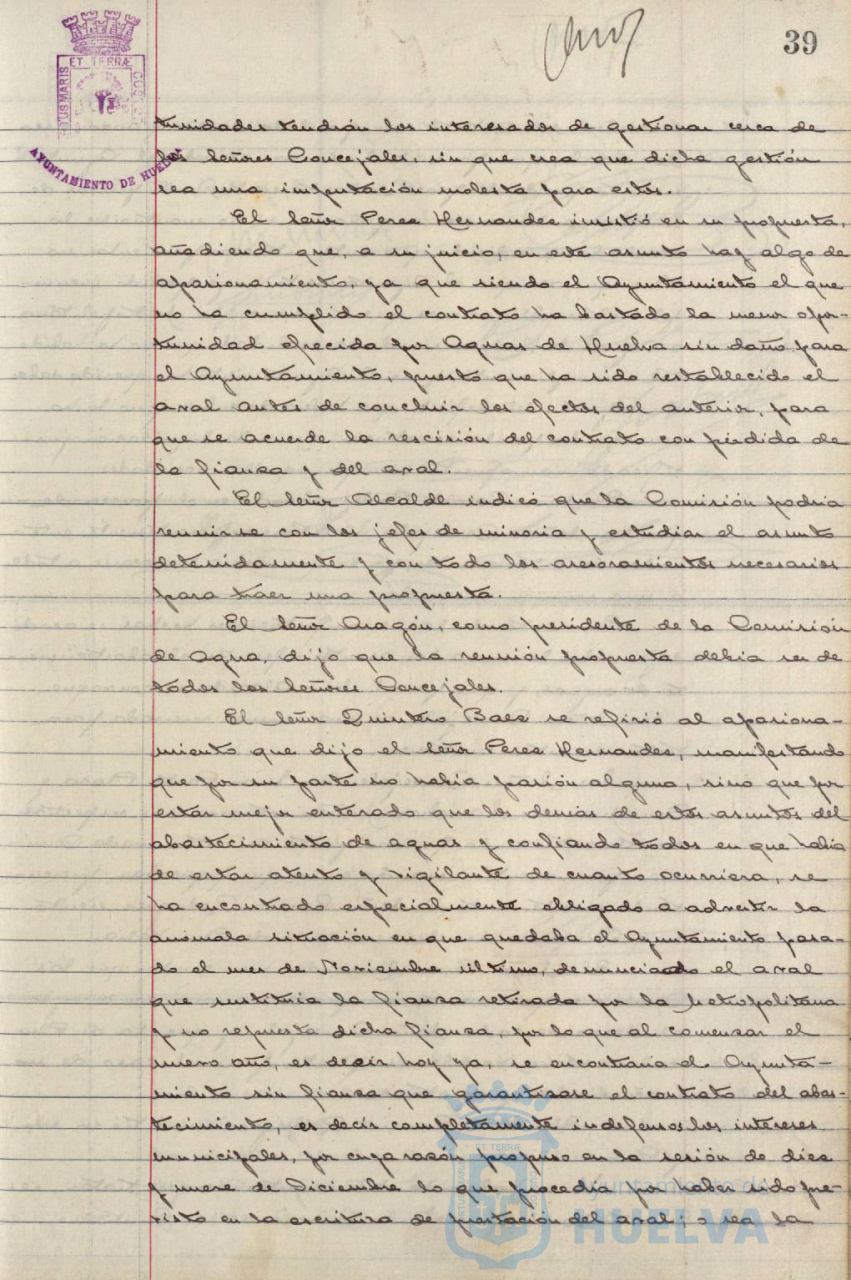 39
PORTUS MARIS ET TERRÆ CUSTODIA
AYUNTAMIENTO DE HUELVA
tunidades tendrán los interesados de gestionar cerca de
los Señores Concejales, sin que crea que dicha gestión
sea una imputación molesta para estos.
El Señor Perez Hernandez insistió en su propuesta,
añadiendo que, a su juicio, en este asunto hay algo de
apasionamiento, ya que siendo el Ayuntamiento el que
no ha cumplido el contrato ha bastado la menor opor-
tunidad ofrecida por Aguas de Huelva sin daño para
el Ayuntamiento, puesto que ha sido restablecido el
aval antes de concluir los efectos del anterior, para
que se acuerde la rescisión del contrato con pérdida de
la fianza y del aval.
El Señor Alcalde indicó que la Comisión podria
reunirse con los jefes de minoria y estudiar el asunto
detenidamente y con todo los asesoramientos necesarios
para traer una propuesta.
El Señor Aragón, como presidente de la Comisión
de Agua, dijo que la reunión propuesta debia ser de
todos los Señores Concejales.
El Señor Quintero Baez se refirió al apasiona-
miento que dijo el Señor Perez Hernandez, manifestando
que por su parte no habia pasión alguna, sino que por
estar mejor enterado que los demás de estos asuntos del
abastecimiento de aguas y confiando todos en que habia
de estar atento y vigilante de cuanto ocurriera, se
ha encontrado especialmente obligado a advertir la
anómala situación en que quedaba el Ayuntamiento pasa-
do el mes de Noviembre último, denunciado el aval
que sustituia la fianza retirada por la Metropolitana
y no repuesta dicha fianza, por lo que al comenzar el
nuevo año, es decir hoy ya, se encontraria el Ayunta-
miento sin fianza que garantizase el contrato del abas-
tecimiento, es decir completamente indefensos los intereses
municipales, por cuya razón propuso en la sesión de diez
y nueve de Diciembre lo que procedia por haber sido pre-
visto en la escritura de prestación del aval; o sea la
Ayuntamiento de
HUELVA